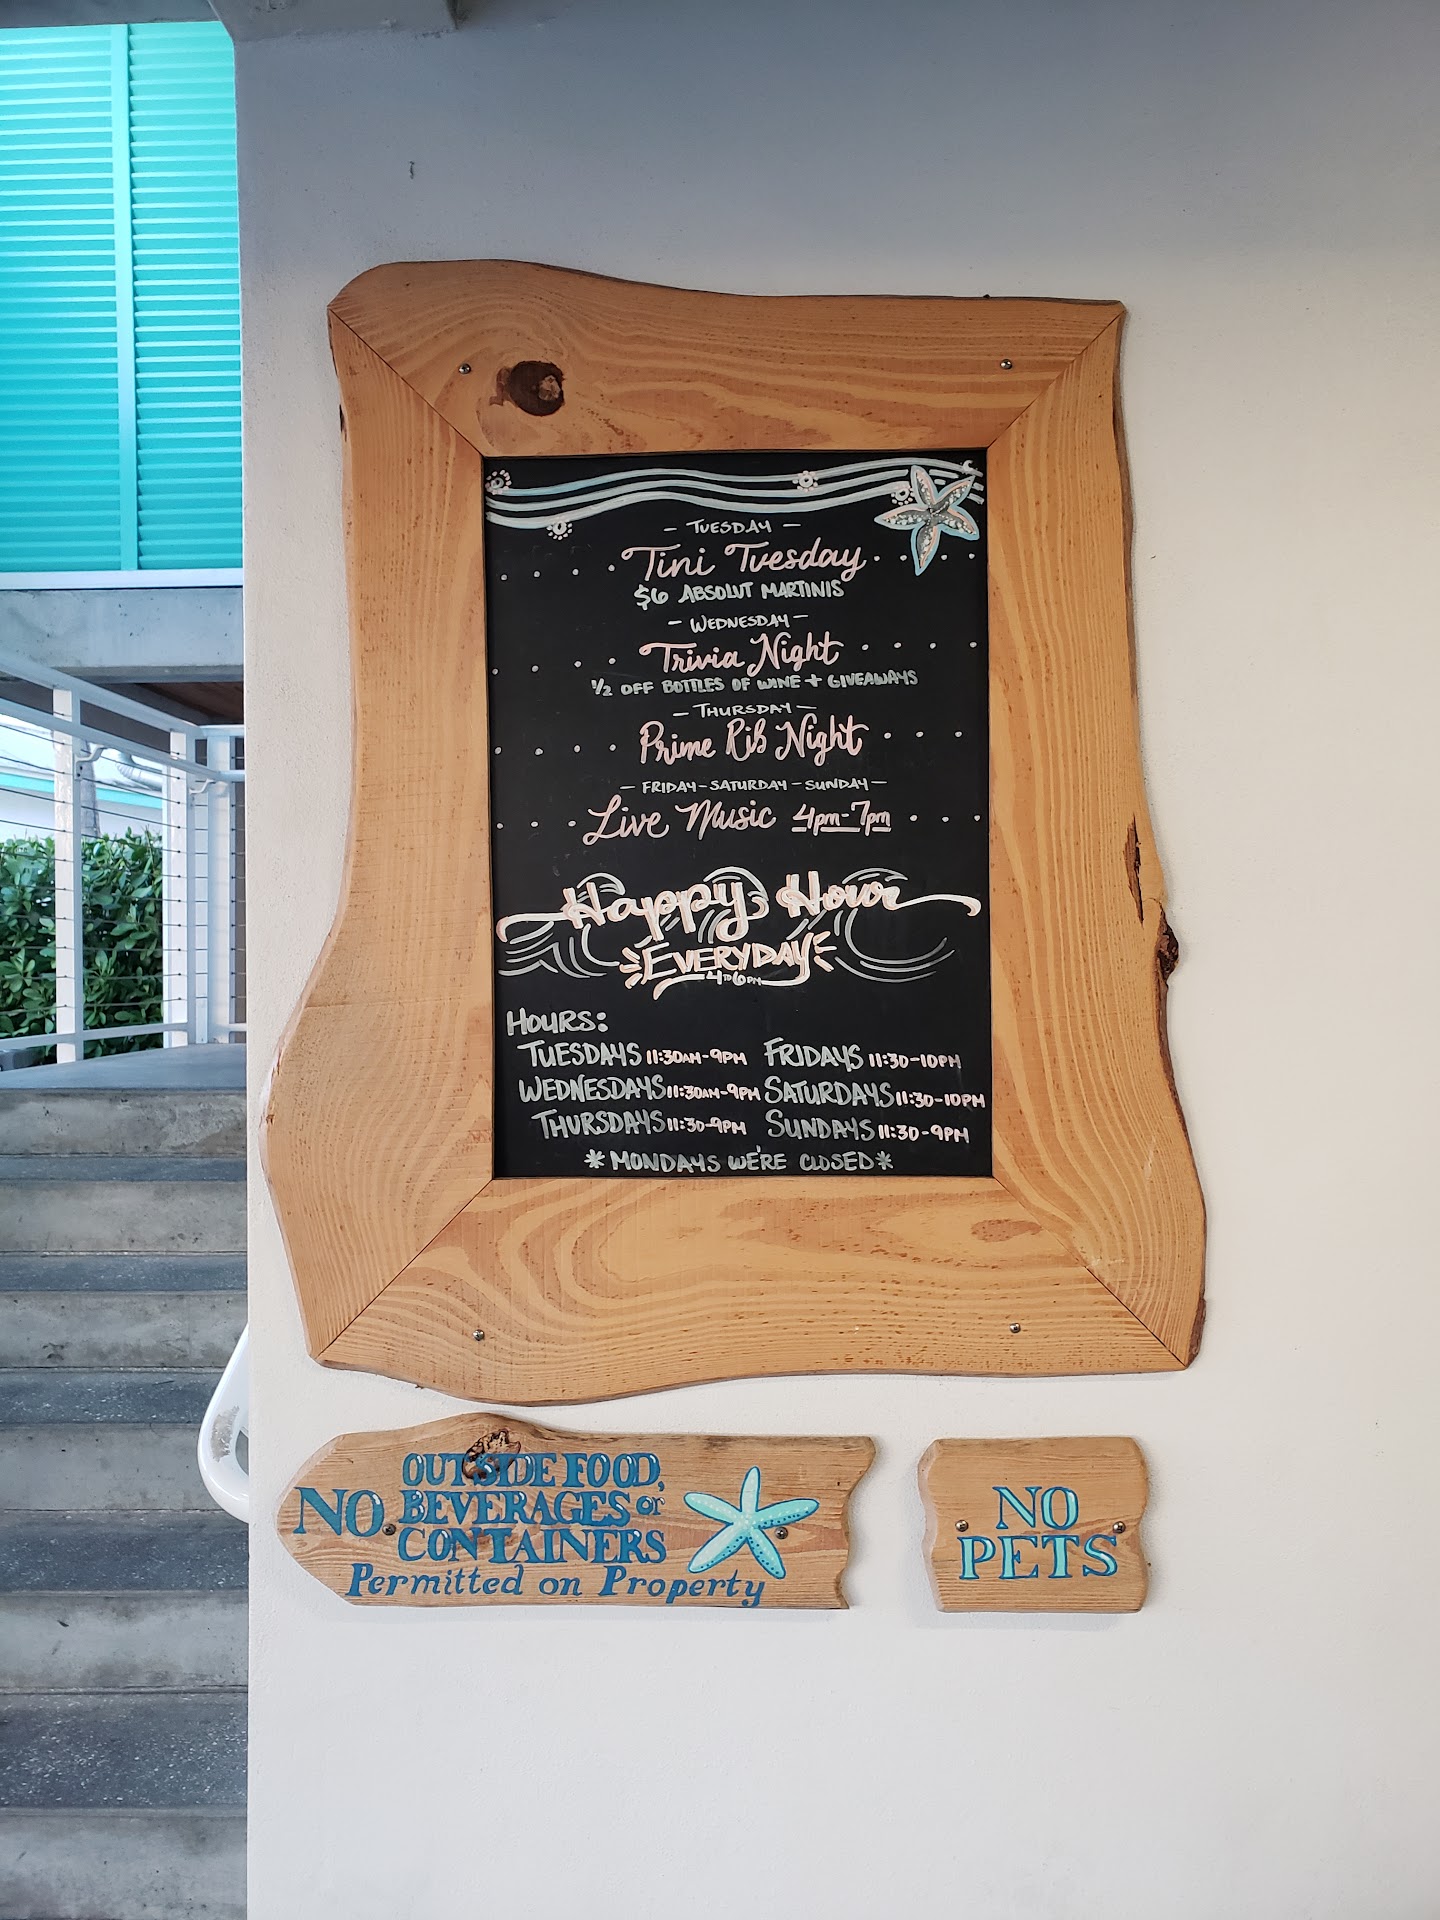 - TUESDAY -
Tini Tuesday
$6 ABSOLUT MARTINIS
- WEDNESDAY -
Trivia Night
1/2 OFF BOTTLES OF WINE + GIVEAWAYS
- THURSDAY -
Prime Rib Night
- FRIDAY - SATURDAY - SUNDAY -
Live Music 4pm-7pm
Happy Hour
EVERYDAY
4 TO 6PM
HOURS:
TUESDAYS 11:30AM-9PM FRIDAYS 11:30-10PM
WEDNESDAYS 11:30AM-9PM SATURDAYS 11:30-10PM
THURSDAYS 11:30-9PM SUNDAYS 11:30-9PM
*MONDAYS WE'RE CLOSED*
NO OUTSIDE FOOD,
BEVERAGES or
CONTAINERS
Permitted on Property
NO
PETS